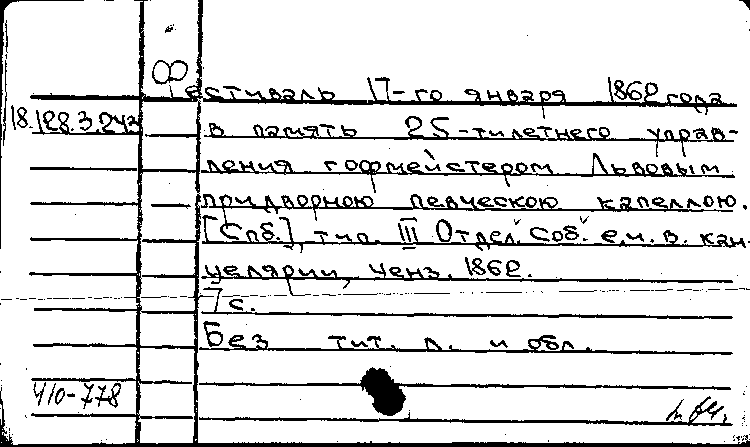 Фестиваль 17-го января 1862 года
18.128.3.243
в память 25-тилетнего управ-
ления гофмейстером Львовым
придворною певческою капеллою.
[Спб.], тип. III Отдел. Соб. е.и.в. кан-
целярии, ценз. 1862.
7 с.
Без тит. л. и обл.
Ч10-778